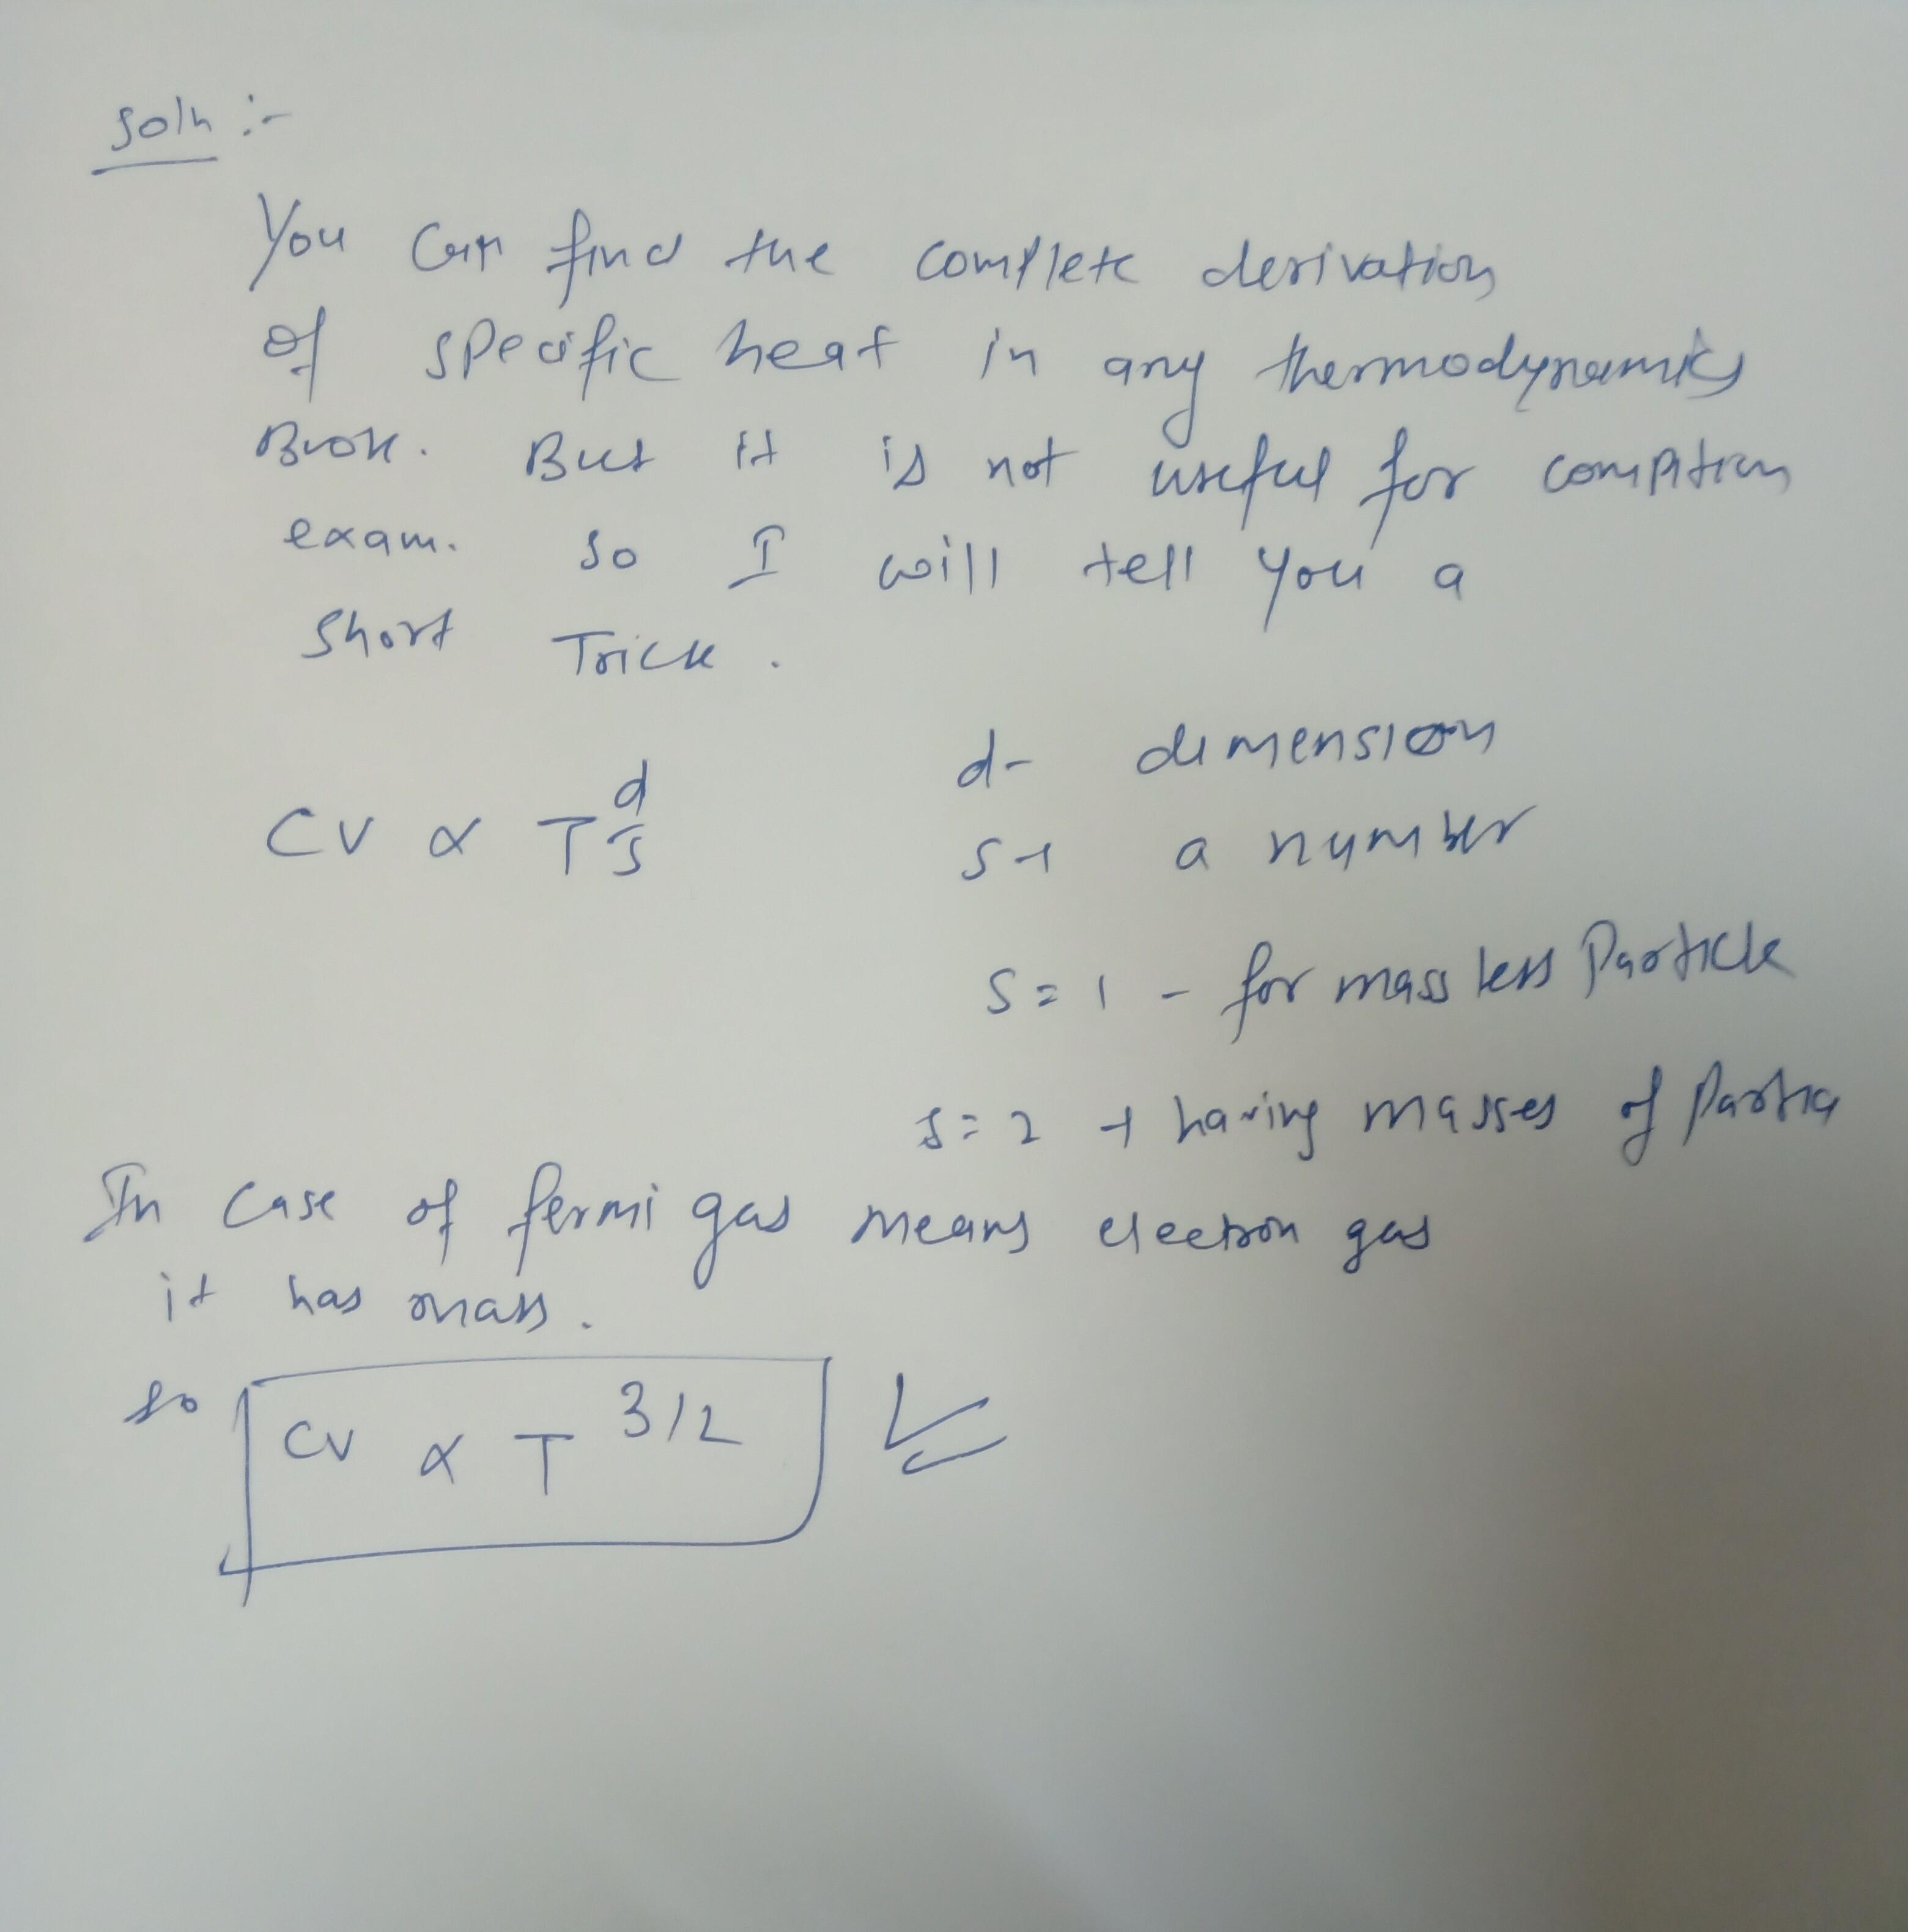 Soln :-
You can find the complete derivation
of specific heat in any thermodynamics
Book. But it is not useful for
exam. So I will tell you a
short Trick.
d - dimension
CV ∝ T^d/s
s → a number
S = 1 - for mass less Particle
s = 2 → having masses of
In case of fermi gas means electron gas
it has mass.
so CV ∝ T^3/2